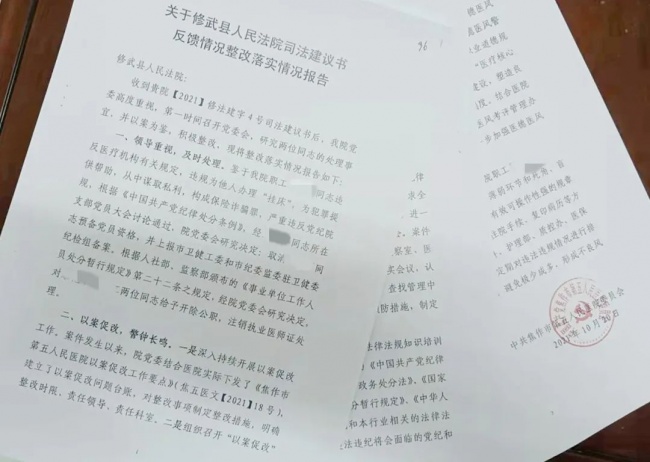 关于修武县人民法院司法建议书
反馈情况整改落实情况报告
96
修武县人民法院：
收到贵院【2021】修法建字4号司法建议书后，我院党
委高度重视，第一时间召开党委会，研究两位同志的处理事
宜，并以案为鉴，积极整改，现将整改落实情况报告如下：
一、领导重视，及时处理。鉴于我院职工 同志违
反医疗机构有关规定，违规为他人办理“挂床”，为犯罪提
供帮助，从中谋取私利，构成保险诈骗罪，严重违反党纪院
规，根据《中国共产党纪律处分条例》，经 同志所在
支部党员大会讨论通过，院党委会研究决定：取消 同
志预备党员资格，并上报市卫健工委和市纪委监委驻卫健委
纪检组备案。根据人社部、监察部颁布的《事业单位工作人
员处分暂行规定》第二十二条之规定，经院党委会研究决定，
对 两位同志给予开除公职，注销执业医师证处
理。
二、以案促改，警钟长鸣。一是深入持续开展以案促改
工作。案件发生以来，院党委结合医院实际下发了《焦作市
第五人民医院以案促改工作要点》（焦五医文【2021】18号），
建立了以案促改问题台账，对整改事项制定整改措施，明确
整改时限、责任领导、责任科室。二是组织召开“以案促改”
律
求全
进一
，案件
察室、医
实会议，认
查找管理中
防措施，制定
法律法规知识培训
《中国共产党纪律
政务处分法》、《国家
分暂行规定》、《中华人
和本行业相关的法律法
法违纪将会面临的党纪和
德医风
医风警
业道德规
“医疗核心
建设，塑造良
制度，结合医院
五风考评管理办
步加强医德医风
及职工
薄弱环节和
有效可操作性强的规章
住院手续、复印病历等方
护理部、质控办、医保
定期对违法违规情况进行排
避免极少成多，形成不良风
中共焦作市 委员会
2021年10月20日